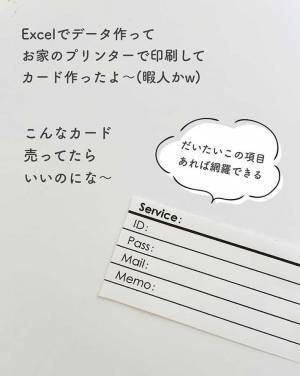 Excelでデータ作って
お家のプリンターで印刷して
カード作ったよ〜(暇人かw)
こんなカード
売ってたら
いいのにな〜
だいたいこの項目
あれば網羅できる
Service:
ID:
Pass:
Mail:
Memo: